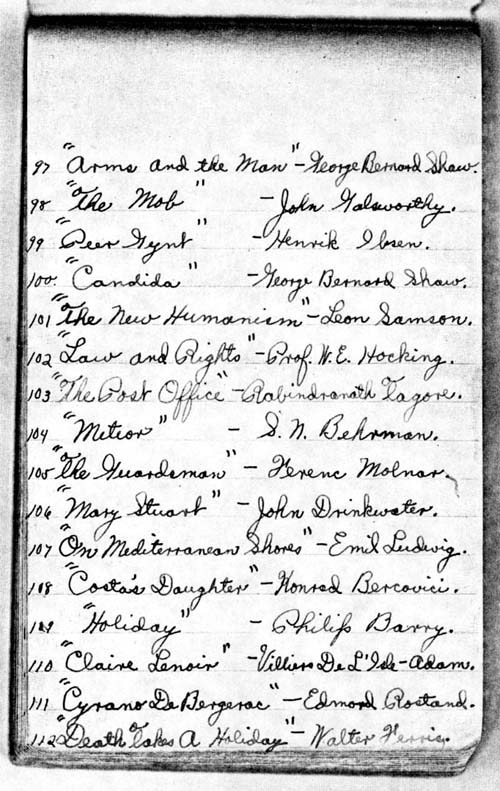 97 "Arms and the Man" - George Bernard Shaw.
98 "The Mob" - John Galsworthy.
99 "Peer Gynt" - Henrik Ibsen.
100. "Candida" - George Bernard Shaw.
101 "The New Humanism" - Leon Samson.
102 "Law and Rights" - Prof. W. E. Hocking.
103 "The Post Office" - Rabindranath Tagore.
104 "Meteor" - S. N. Behrman.
105 "The Guardsman" - Ferenc Molnar.
106 "Mary Stuart" - John Drinkwater.
107 "On Mediterranean Shores" - Emil Ludwig.
108 "Costa's Daughter" - Konrad Bercovici.
109 "Holiday" - Philip Barry.
110 "Claire Lenoir" - Villiers De L'Isle-Adam.
111 "Cyrano De Bergerac" - Edmond Rostand.
112 "Death Takes A Holiday" - Walter Ferris.